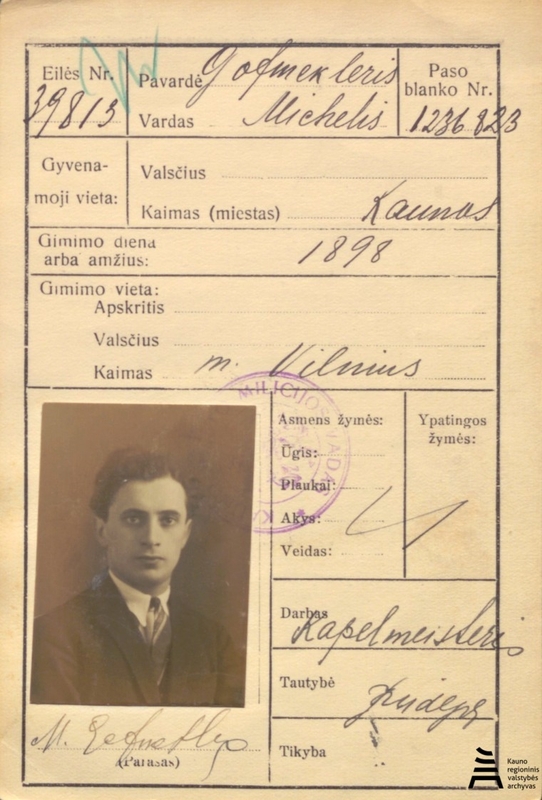 Eilės Nr. 39813
Pavardė Gofmekleris
Vardas Michelis
Paso blanko Nr. 1236823
Gyvenamoji vieta:
Valsčius
Kaimas (miestas) Kaunas
Gimimo diena arba amžius: 1898
Gimimo vieta:
Apskritis
Valsčius
Kaimas m. Vilnius
MILICIJOS VADAS
Asmens žymės:
Ūgis:
Plaukai:
Akys:
Veidas:
Ypatingos žymės:
Darbas Kapelmeisteris
Tautybė
Tikyba
M.
(Parašas)
Kauno
regioninis
valstybės
archyvas